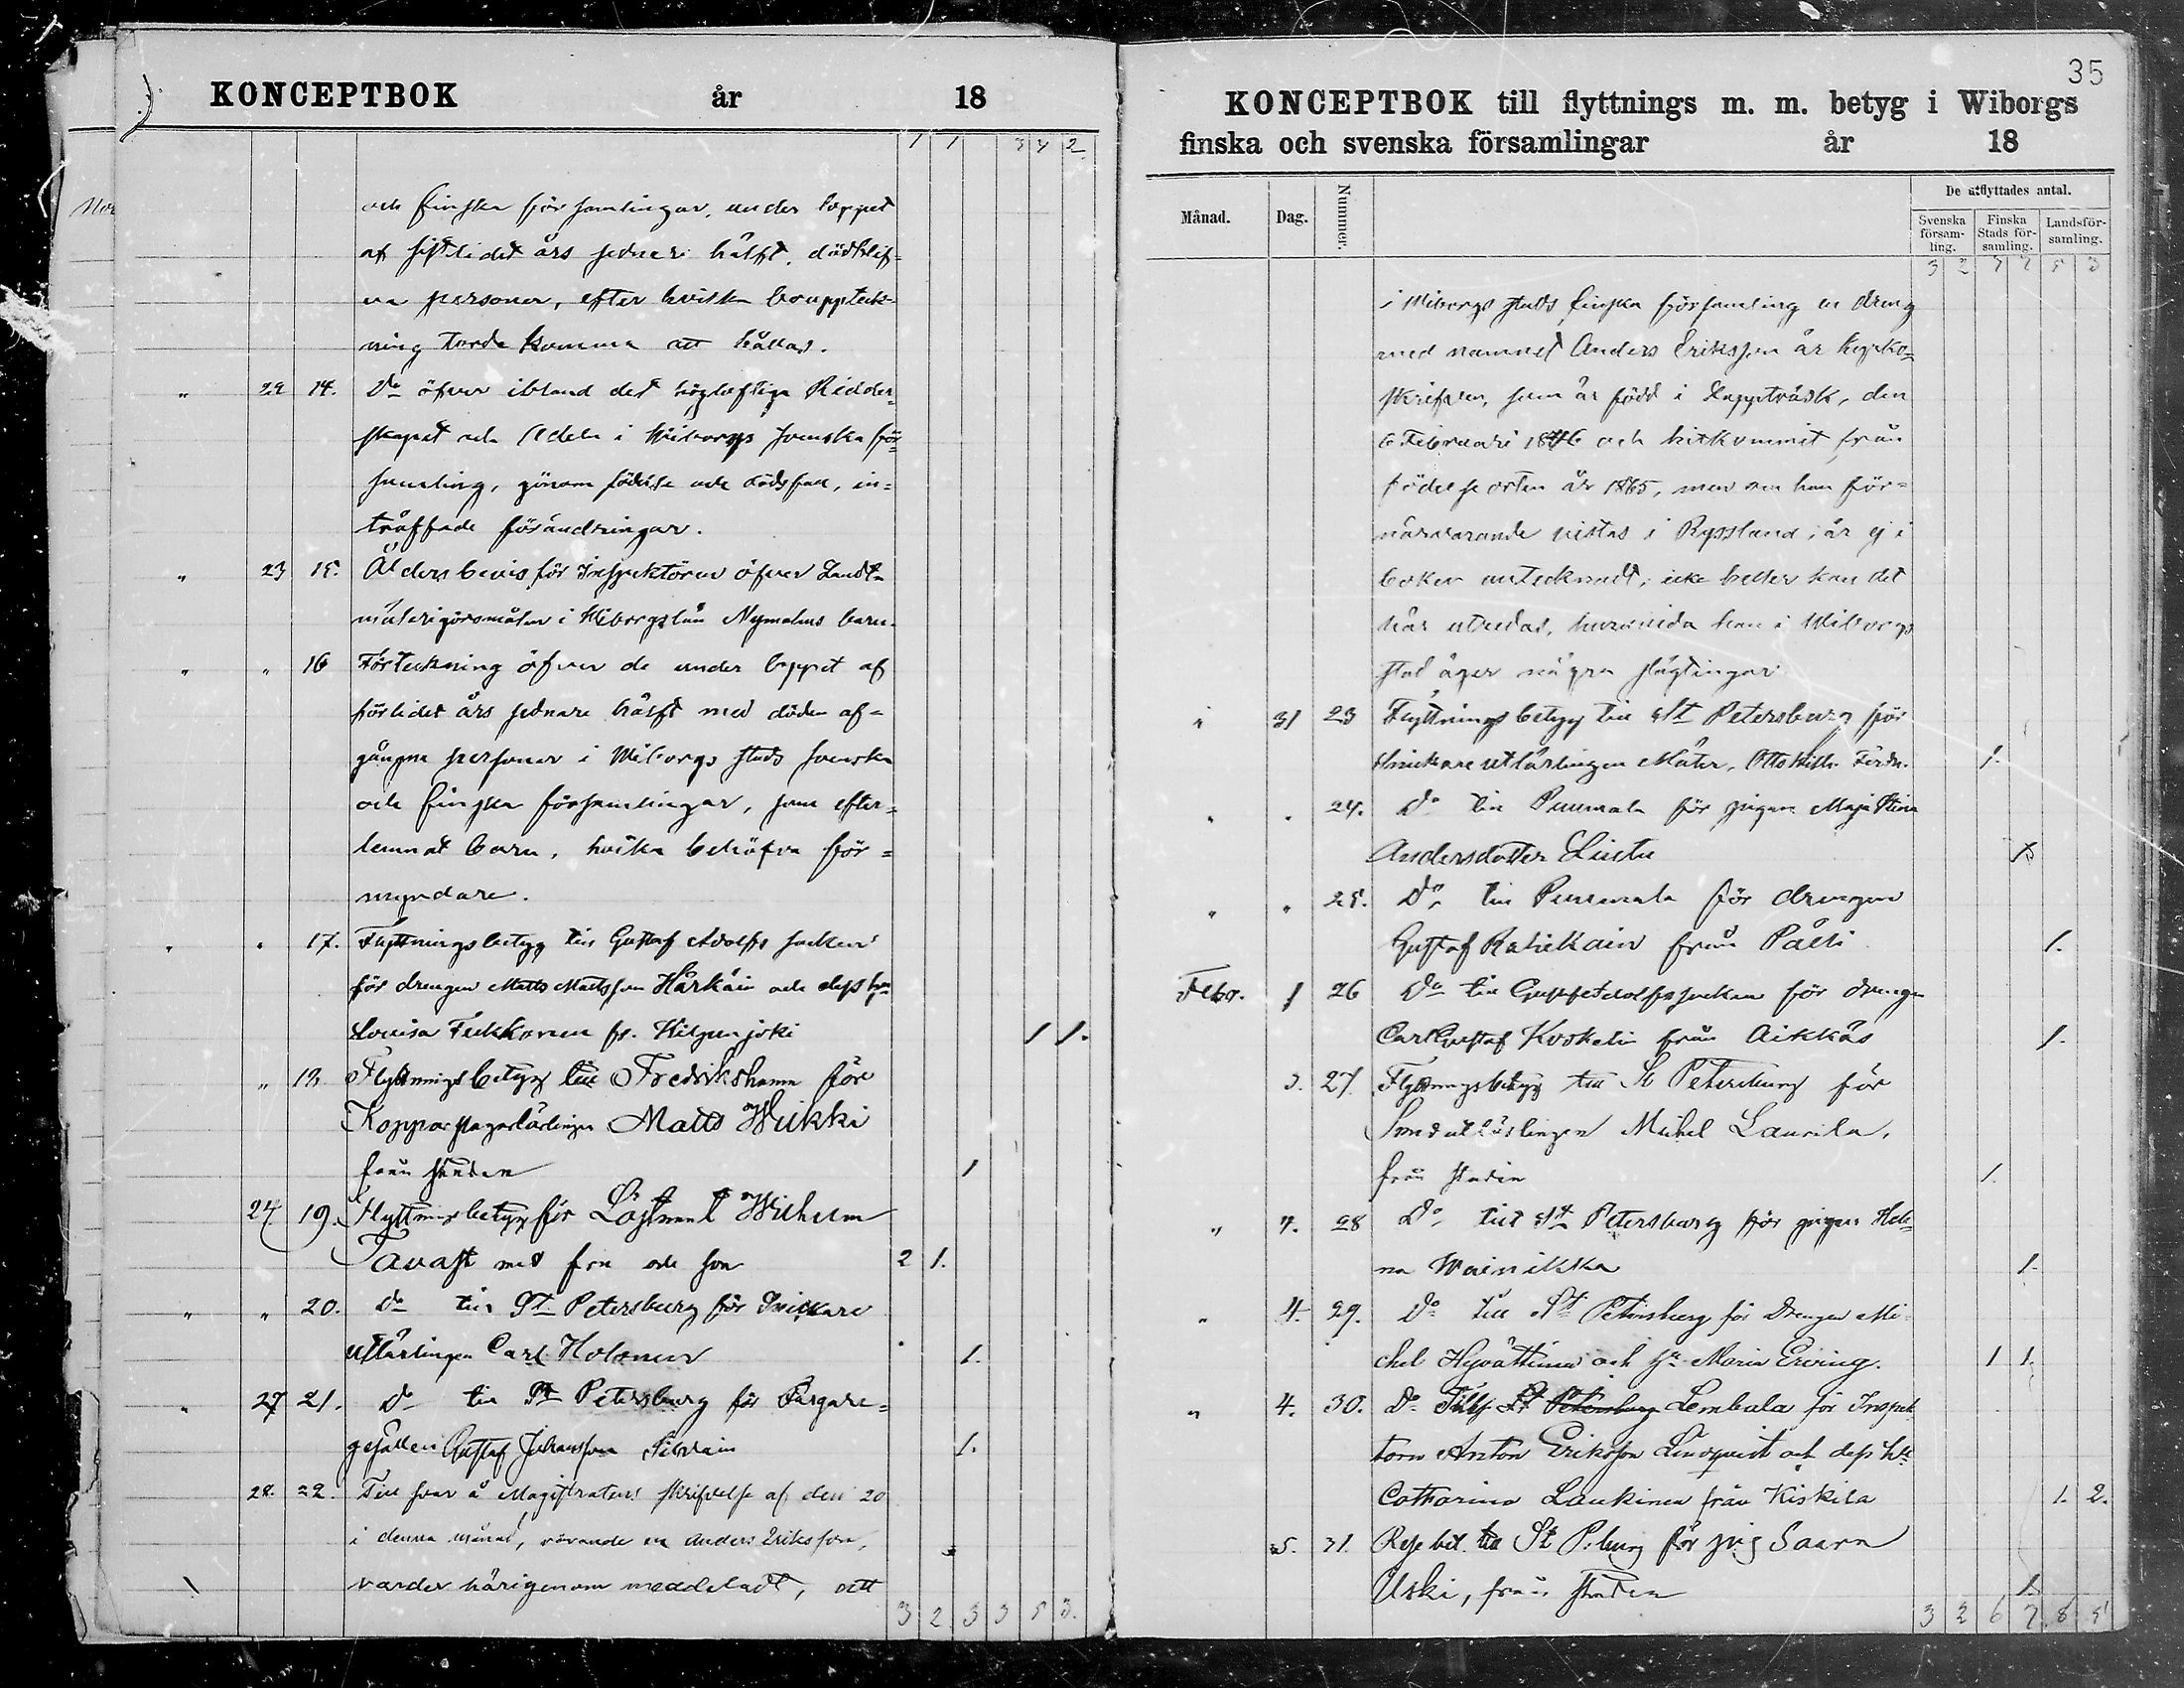 KONCEPTBOK år 18
1 1 3 4 2
och finska församlingar, under loppet
af sistlidet års sednare hälft, dödblif-
na personer, efter hvilka bouppteck-
ning torde komma att hållas.
" 22 14. Do öfver ibland det höglofliga Ridder-
skapet och Adeln i Wiborgs svenska för-
samling, genom födelse och dödsfall, in-
träffade förändringar.
" 23 15. Åldersbevis för Inspektören öfver Landt-
mäterigöromålen i Wiborgs län Nymalms barn.
" " 16 Förteckning öfver de under loppet af
förlidet års sednare hälft med döden af-
gångne personer i Wiborgs stads svenska
och finska församlingar, som efter-
lemnat barn, hvilka behöfva för-
myndare.
" " 17. Flyttningsbetyg till Gustaf Adolfs socken
för drengen Matts Mattsson Härkäin och dess hu
Lovisa Tukkonen fr. Kilpenjoki 1 1.
" 18 Flyttningsbetyg till Fredrikshamn för
Kopparslagarlärlingen Matts Hukki
från staden 1
24 19. Flyttningsbetyg för Löjtnant Wilhelm
Tavast med fru och son 2 1.
" " 20. Do till St. Petersburg för Snickare
utlärlingen Carl Holonen 1.
" 27 21. Do till St Petersburg för Färgare-
gesällen Gustaf Johansson 1.
28. 22. Till svar å Magistratens skrifvelse af den 20
i denna månad, rörande en Anders Eriksson,
varder härigenom meddeladt, att
3 2 3 3 5 3.
35
KONCEPTBOK till flyttnings m. m. betyg i Wiborgs
finska och svenska församlingar år 18
Månad. Dag. Nummer. De utflyttades antal.
Svenska försam-ling. Finska Stads för-samling. Landsför-samling.
3 2 5 3
i Wiborgs stads finska församling en dreng
med namnet Anders Eriksson är kyrko-
skrifven, som är född i Lappträsk, den
6 Februari 1846 och hitkommit från
födelseorten år 1865, men om han för-
närvarande vistas i Ryssland, är ej i
boken antecknadt; icke heller kan det
här utredas, huruvida han i Wiborgs
stad äger några slägtingar.
" 31 23 Flyttningsbetyg till St Petersburg för
Snickare utlärlingen Mäter, Otto Wilh. Ferdn. 1.
" " 24. Do till Puumala för pigan Maja Stina
Andersdotter Lintu 1
" " 25. Do till Puumala för drengen
Gustaf Ratikain från Pälli 1.
Febr. 1 26 Do till Gustaf Adolfs socken för drengen
Carl Gustaf Koskelin från Aikkäs 1.
3. 27. Flyttningsbetyg till St Petersburg för
Smed utlärlingen Mickel Laurila,
från staden 1.
" 4. 28 Do till St Petersburg för pigan Hele-
na Wainikka 1.
" 4. 29. Do till St Petersburg för Drengen Mi-
chel Hyvättinen och hu Maria Ering. 1 1.
" 4. 30. Do till St Petersburg Lembala för Inspek
torn Anton Eriksson Lindqvist och dess hu
Catharina Laukinen från Kiskila 1. 2.
5. 31. Rese bet. till St P.burg för pig Saara
Uski, från staden 1.
3 2 6 7 8 5